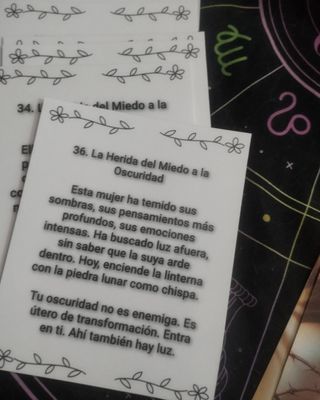 34. L
del Miedo a la
36. La Herida del Miedo a la
Oscuridad
Esta mujer ha temido sus
sombras, sus pensamientos más
profundos, sus emociones
intensas. Ha buscado luz afuera,
sin saber que la suya arde
dentro. Hoy, enciende la linterna
con la piedra lunar como chispa.
Tu oscuridad no es enemiga. Es
útero de transformación. Entra
en ti. Ahí también hay luz.